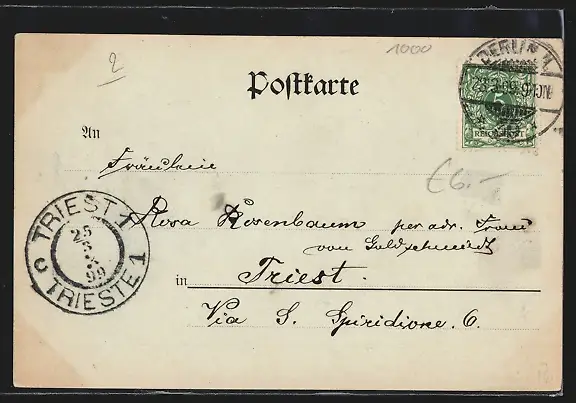 2
1000
Postkarte
BERLIN
5
REICHSPOST
An
Fräulein
€6.-
Rosa Rosenbaum per adr. Frau
von Goldschmidt
in Triest.
Via S. Spiridione. 6.
TRIEST 1
25
3
99
C
TRIESTE 1